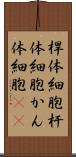 桿体細胞杆
体細胞かん
体細胞《《